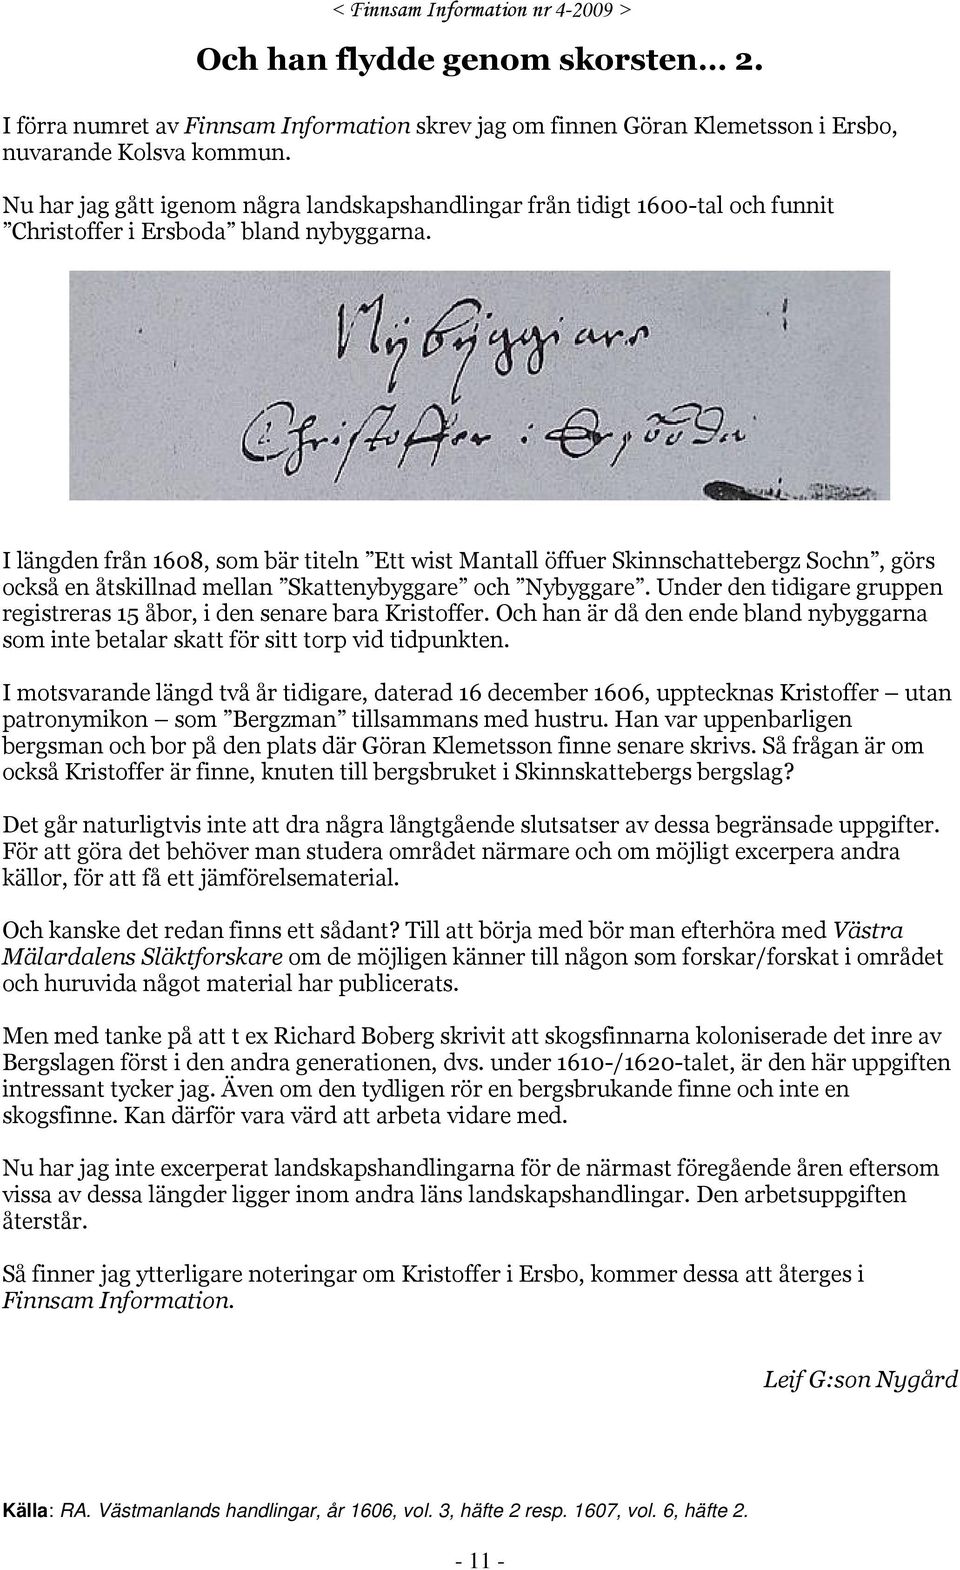 < Finnsam Information nr 4-2009 >
Och han flydde genom skorsten… 2.
I förra numret av Finnsam Information skrev jag om finnen Göran Klemetsson i Ersbo,
nuvarande Kolsva kommun.
Nu har jag gått igenom några landskapshandlingar från tidigt 1600-tal och funnit
”Christoffer i Ersboda” bland nybyggarna.
Nÿbÿggiare
Christoffer i Ersboda
I längden från 1608, som bär titeln ”Ett wist Mantall öffuer Skinnschattebergz Sochn”, görs
också en åtskillnad mellan ”Skattenybyggare” och ”Nybyggare”. Under den tidigare gruppen
registreras 15 åbor, i den senare bara Kristoffer. Och han är då den ende bland nybyggarna
som inte betalar skatt för sitt torp vid tidpunkten.
I motsvarande längd två år tidigare, daterad 16 december 1606, upptecknas Kristoffer – utan
patronymikon – som ”Bergzman” tillsammans med hustru. Han var uppenbarligen
bergsman och bor på den plats där Göran Klemetsson finne senare skrivs. Så frågan är om
också Kristoffer är finne, knuten till bergsbruket i Skinnskattebergs bergslag?
Det går naturligtvis inte att dra några långtgående slutsatser av dessa begränsade uppgifter.
För att göra det behöver man studera området närmare och om möjligt excerpera andra
källor, för att få ett jämförelsematerial.
Och kanske det redan finns ett sådant? Till att börja med bör man efterhöra med Västra
Mälardalens Släktforskare om de möjligen känner till någon som forskar/forskat i området
och huruvida något material har publicerats.
Men med tanke på att t ex Richard Boberg skrivit att skogsfinnarna koloniserade det inre av
Bergslagen först i den andra generationen, dvs. under 1610-/1620-talet, är den här uppgiften
intressant tycker jag. Även om den tydligen rör en bergsbrukande finne och inte en
skogsfinne. Kan därför vara värd att arbeta vidare med.
Nu har jag inte excerperat landskapshandlingarna för de närmast föregående åren eftersom
vissa av dessa längder ligger inom andra läns landskapshandlingar. Den arbetsuppgiften
återstår.
Så finner jag ytterligare noteringar om Kristoffer i Ersbo, kommer dessa att återges i
Finnsam Information.
Leif G:son Nygård
Källa: RA. Västmanlands handlingar, år 1606, vol. 3, häfte 2 resp. 1607, vol. 6, häfte 2.
- 11 -